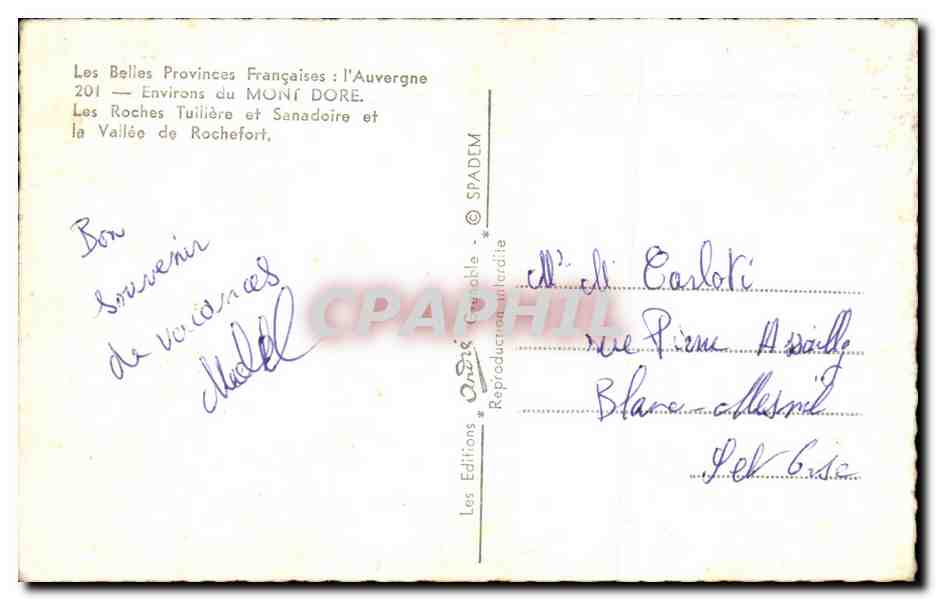 Les Belles Provinces Françaises : l'Auvergne
201 — Environs du MONT DORE.
Les Roches Tuilière et Sanadoire et
la Vallée de Rochefort.
Bon
souvenir
de vacances
Les Editions * André Grenoble - * © SPADEM
Reproduction interdite
CPAPHIL
Mr M Carloti
rue Pierre
Blanc-Mesnil
Set Oise